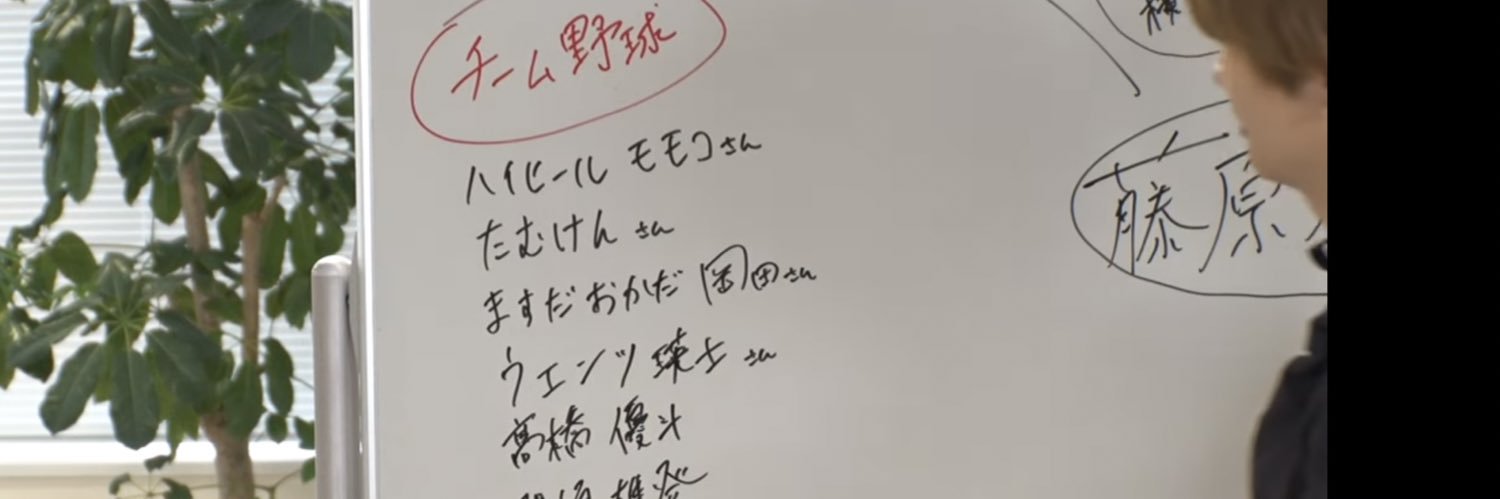 チーム野球
ハイヒール モモコさん
たむけん さん
ますだおかだ 岡田さん
ウエンツ瑛士 さん
髙橋 優斗
藤原